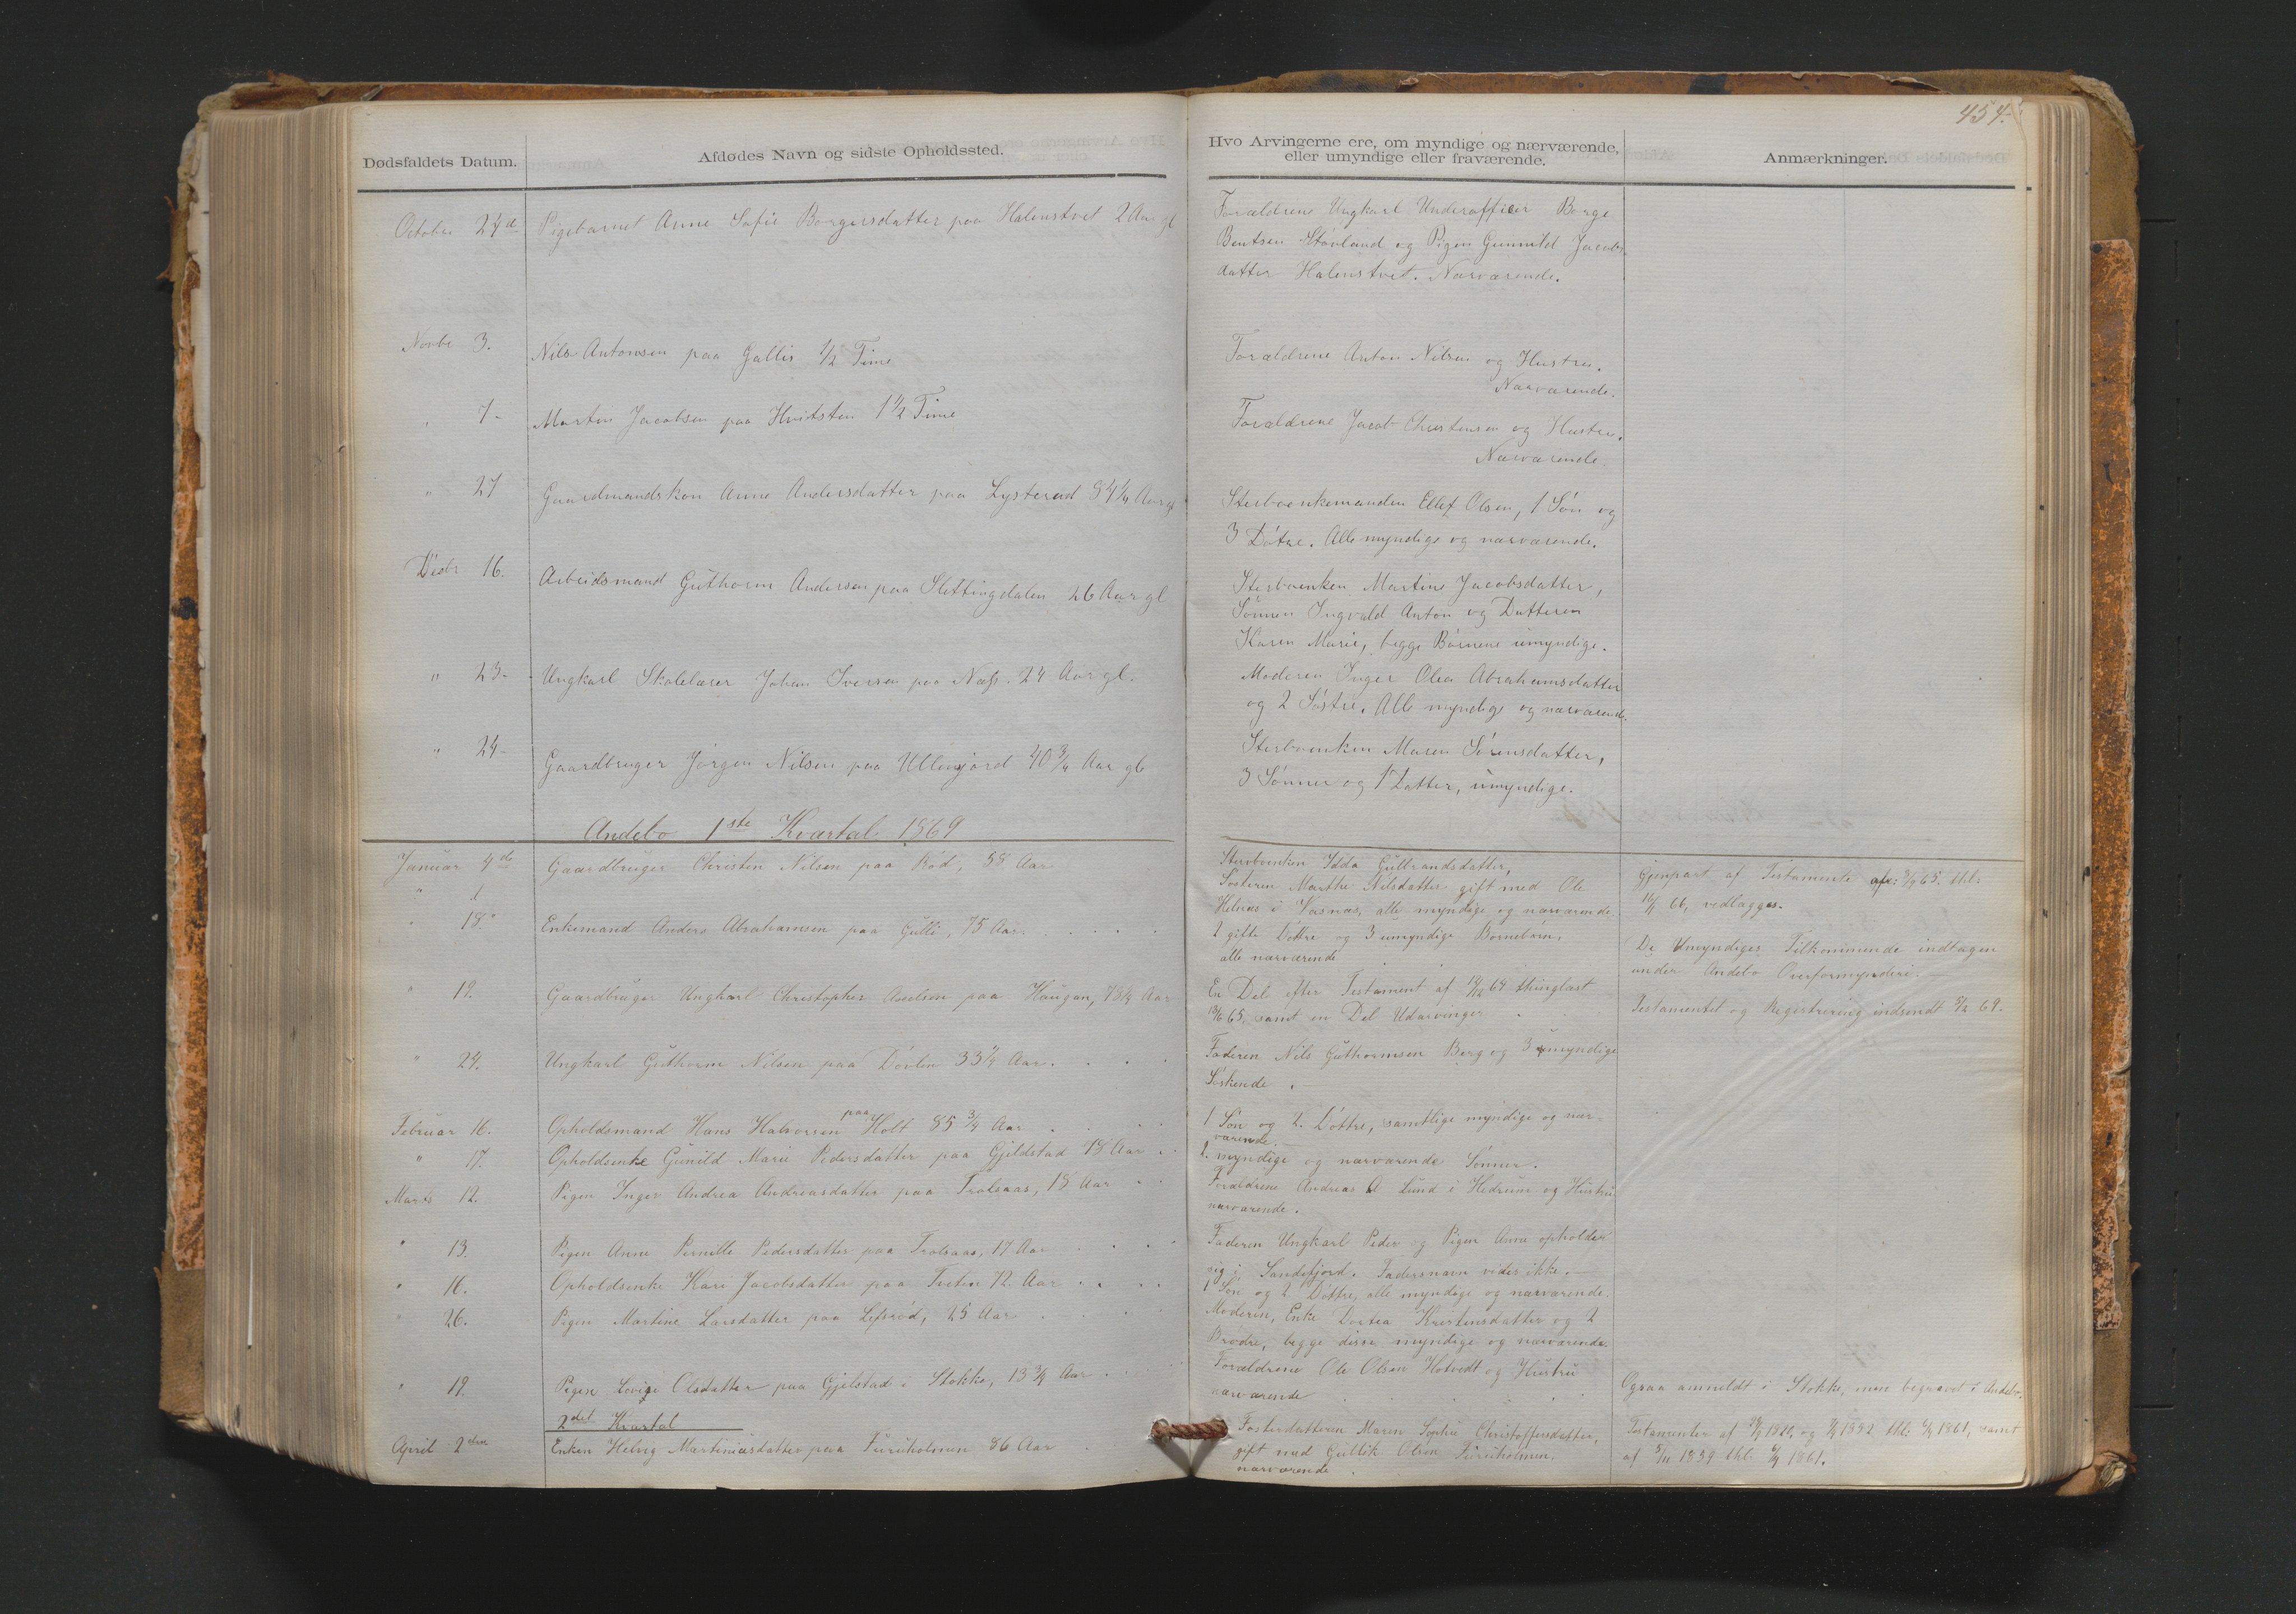 454.
Dødsfaldets Datum.
Afdødes Navn og sidste Opholdssted.
Hvo Arvingerne ere, om myndige og nærværende,
eller umyndige eller fraværende.
Anmærkninger.
Octobr 24de Pigebarnet Anne Sofie Borgersdatter paa Halenstvet 2 Aar gl
Forældrene Ungkarl Underofficier Borge
Bentsen Støvland og Pigen Gunnild Jacobs-
datter Halenstvet. Nærværende.
Novbr 3. Nils Antonsen paa Gallis 1/2 Time
Forældrene Anton Nilsen og Hustru.
Nærværende.
" 7- Martin Jacobsen paa Hvitsten 1 1/2 Time
Forældrene Jacob Christensen og Hustru.
Nærværende
" 27 Gaardmandskon Anne Andersdatter paa Lysterud 84 1/4 Aar gl
Sterboenkemanden Ellef Olsen, 1 Søn og
3 Døtre. Alle myndige og nærværende.
Decbr 16. Arbeidsmand Guthorm Andersen paa Slettingdalen 26 Aar gl
Sterboenken Martine Jacobsdatter,
Sønnen Ingvald Anton og Datteren
Karen Marie, begge Børnene umyndige.
" 23- Ungkarl Skolelærer Johan Iversen paa Næss. 24 Aar gl.
Moderen Inger Olea Abrahamsdatter
og 2 Søstre. Alle myndige og nærværende.
" 24- Gaardbruger Jørgen Nilsen paa Ullensjord 40 3/4 Aar gl
Sterboenken Maren Sørensdatter,
3 Sønner og 1 Datter, umyndige.
Andebo 1ste Kvartal 1869
Januar 4de Gaardbruger Christen Nilsen paa Rød, 58 Aar
Sterboenken Idda Gulbrandsdatter,
Søsteren Marthe Nilsdatter gift med Ole
Helnæs i Vasnæs, alle myndige og nærværende
Gjenpart af Testamente
66, vedlægges.
" 18. Enkemand Anders Abrahamsen paa Gulli, 75 Aar.
2 gifte Døttre og 3 umyndige Børnebørn,
alle nærværende
De Umyndiges Tilkommende indtages
under Andebo Overformynderi.
" 19. Gaardbruger Ungkarl Christopher Axelsen paa Haugan, 73 1/4 Aar
En Del efter Testament af 69 thinglæst
65, samt en Del Udarvinger
Testamentet og Registrering indsendt 8/2 69.
" 24. Ungkarl Guthorm Nilsen paa Døvlen 33 1/4 Aar.
Faderen Nils Guthormsen Berg og 3 umyndige
Søskende.
Februar 16. Opholdsmand Hans Halvorsen paa Holt 85 3/4 Aar
1 Søn og 2. Døttre, samtlige myndige og nær-
værende.
" 17. Opholdsenke Gunild Marie Pedersdatter paa Gjeldstad 78 Aar
2. myndige og nærværende Sønner.
Marts 12. Pigen Inger Andrea Andreasdatter paa Trolsaas, 18 Aar
Forældrene Andreas A Lund i Hedrum og Hustru
nærværende.
" 13. Pigen Anne Pernille Pedersdatter paa Trolsaas, 17 Aar
Faderen Ungkarl Peder og Pigen Anne opholder
sig i Sandefjord. Fadersnavn vides ikke.
" 16. Opholdsenke Kari Jacobsdatter paa Treter 72. Aar
1 Søn og 2 Døttre, alle myndige og nærværende.
" 26. Pigen Martine Larsdatter paa Lefsrød, 25 Aar
Moderen, Enke Dortea Kristensdatter og 2
Brødre, begge disse myndige og nærværende.
" 19. Pigen Lovise Olsdatter paa Gjelstad i Stokke, 13 3/4 Aar
Forældrene Ole Olsen Hotvedt og Hustru
nærværende
Ogsaa anmeldt i Stokke, men begravet i Andebo.
2det Kvartal
April 2den Enken Helvig Martiniusdatter paa Furuholmen 86 Aar
Fosterdatteren Maren Sophie Christoffersdatter,
gift med Gullik Olsen Furuholmen.
nærværende
Testamenter af 1820, og 1832 thl: 1861, samt
af 5/11 1839 thl. 1861.